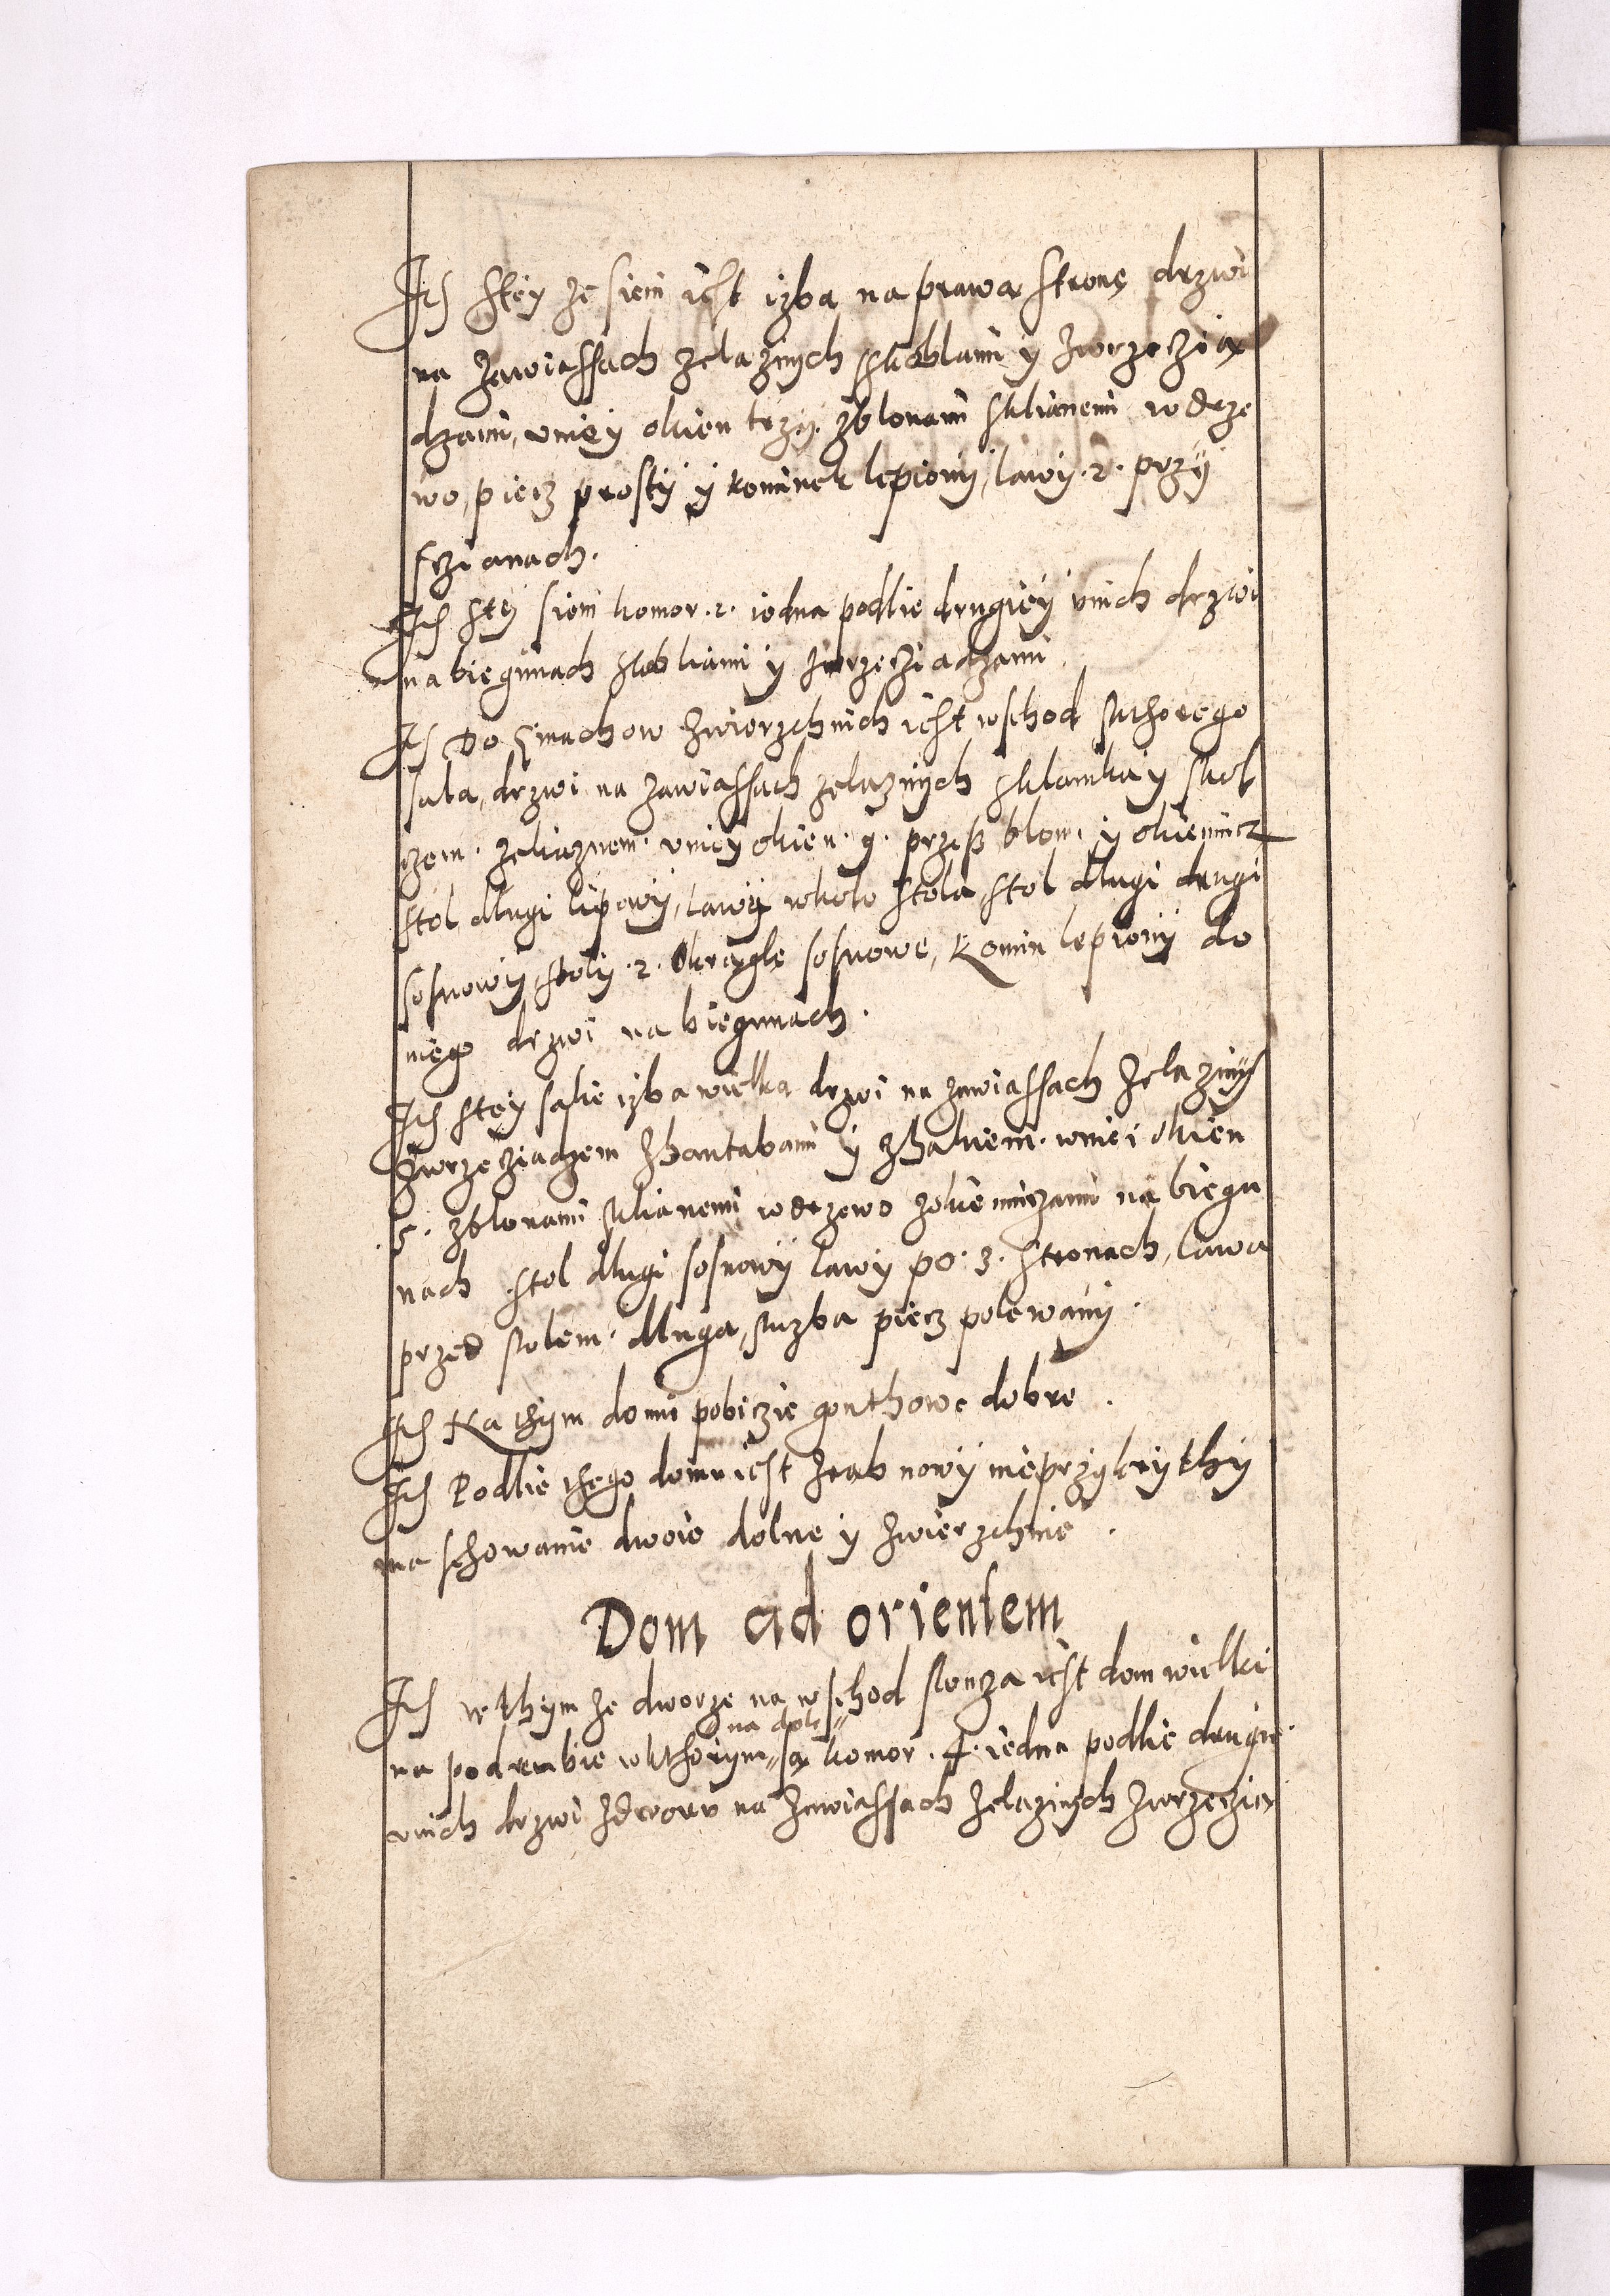 Ite(m) stey ze sieni iest izba na prawa strone drzwi
na zawiassach zelaznych skoblami y wrzeczia
dzami, vniey okien trzy, zblonami sklianemi wdrze
wo, piecz prosty y kominek lepiony, lawy .2. przy
sczianach.
Ite(m) stey sieni komor .2. iedna podlie drugiey vnich drzwi
na biegunach skobliami y wrzecziadzami
Ite(m) Do Gmachow zwierzchnich iest wschod sktorego
sala, drzwi na zawiassach zelaznych sklamka y skob
czem. zeliaznem. vniey okien .9. przesz blon. y okiennicz
stol dlugi lipowy, lawy wkolo stola, stol dlugi drugi
sosnowy, stoly .2. okragle sosnowe, komin lepiony do
niego drzwi na biegunach.
Ite(m) stey salie izba wielka drzwi na zawiassach zelaznych
zwrzecziadzem zhantabami y zhakiem. wniei okien
.5. zblonami sklianemi wdrzewo zokienniczami na biegu
nach stol dlugi sosnowy lawy po .3. stronach, lawa
przed stolem. dluga, sluzba piecz polewany.
Ite(m) Na thym domu pobiczie gonthowe dobre.
Ite(m) Podlie thego domu iest zrab nowy nieprzykrythy
ma schowanie dwoie dolne y zwierzchnie.
Dom ad orientem
Ite(m) w thym ze dworze na wschod slonca iest dom wielki
na podrembie wkthorym na dole są komor .4. iedna podlie drugie.
vnich drzwi zdworu na zawiassach zelaznych zwrzeczia